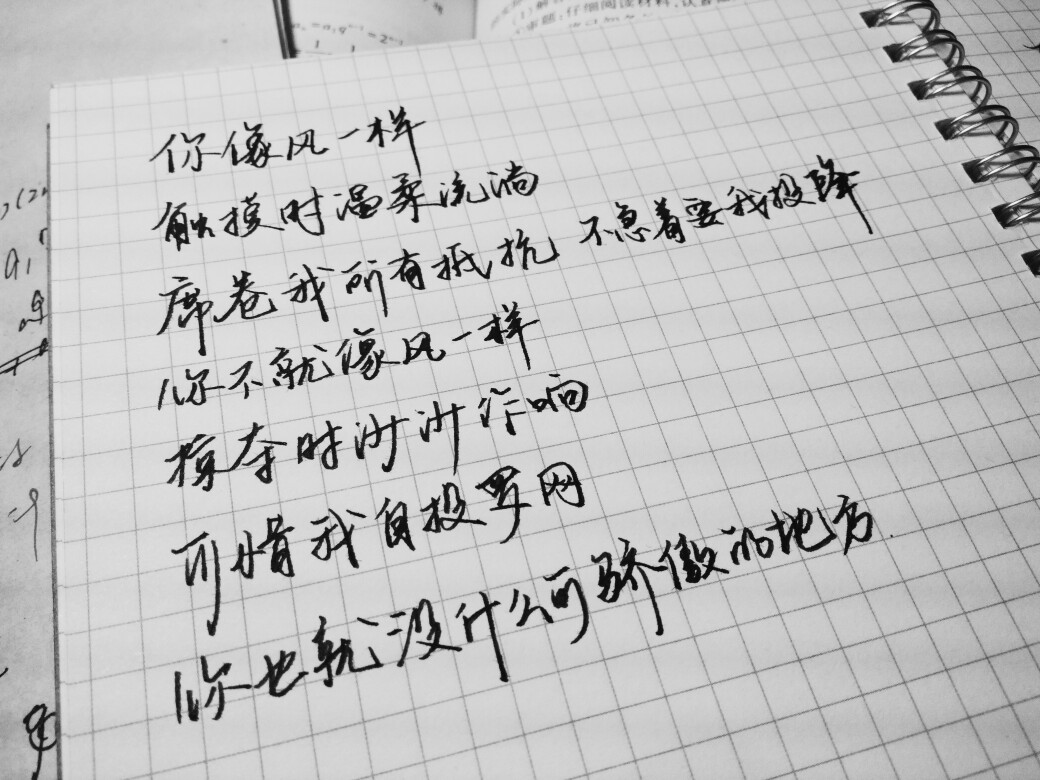 (1)解
本题:仔细阅读材料,认
你像风一样
触摸时温柔流淌
席卷我所有抵抗 不急着要我投降
你不就像风一样
掠夺时沙沙作响
可惜我自投罗网
你也就没什么可骄傲的地方.